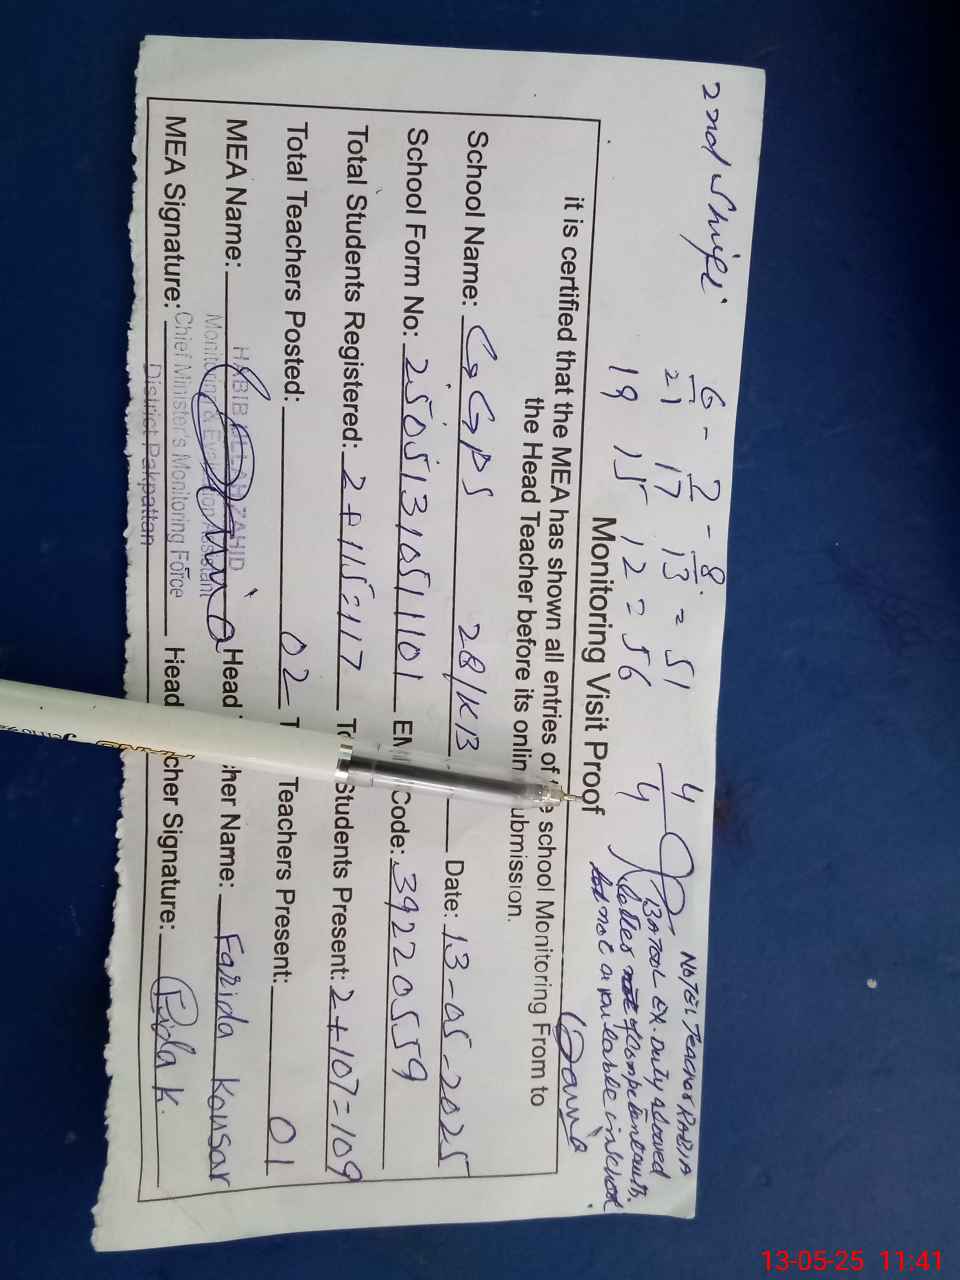 2nd Shift
6 - 7 - 8
21 17 13 = 51
19 15 12 = 56
4
4
NOTE: Teacher RABIA
BATOOL EX. Duty
not available in school
Monitoring Visit Proof
it is certified that the MEA has shown all entries of the school Monitoring From to
the Head Teacher before its online submission.
School Name: GGPS 28/KB Date: 13-05-2025
School Form No: 2505131051101 EMIS Code: 39220559
Total Students Registered: 2+115=117 Total Students Present: 2+107=109
Total Teachers Posted: 02 Total Teachers Present: 01
MEA Name: Head Teacher Name: Farida Kousar
MEA Signature: Head Teacher Signature: Farida K.
HABIB ULLAH ZAHID
Monitoring & Evaluation Assistant
Chief Minister's Monitoring Force
District Pakpattan
13-05-25 11:41